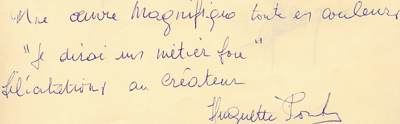 Une œuvre magnifique toute en couleurs
"Je dirai un métier fou"
félicitations au créateur
Huguette